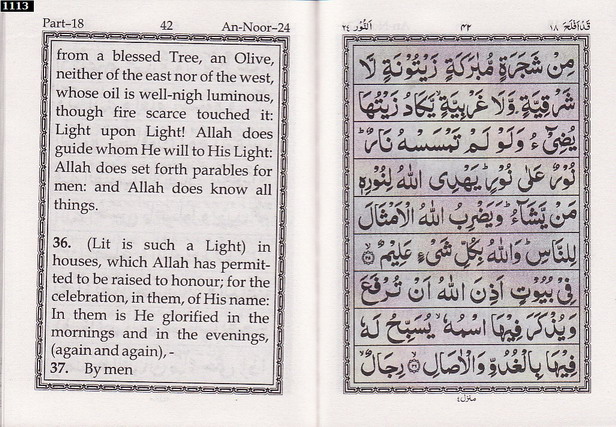 1113
Part–18 42 An-Noor–24
from a blessed Tree, an Olive,
neither of the east nor of the west,
whose oil is well-nigh luminous,
though fire scarce touched it:
Light upon Light! Allah does
guide whom He will to His Light:
Allah does set forth parables for
men: and Allah does know all
things.
36. (Lit is such a Light) in
houses, which Allah has permit-
ted to be raised to honour; for the
celebration, in them, of His name:
In them is He glorified in the
mornings and in the evenings,
(again and again), -
37. By men
قد افلح ١٨ ٤٢ النّور ٢٤
مِنْ شَجَرَةٍ مُّبٰرَكَةٍ زَيْتُوْنَةٍ لَّا
شَرْقِيَّةٍ وَّلَا غَرْبِيَّةٍ ۙ يَّكَادُ زَيْتُهَا
يُضِیْٓءُ وَلَوْ لَمْ تَمْسَسْهُ نَارٌ ؕ
نُوْرٌ عَلٰى نُوْرٍ ؕ يَهْدِى اللّٰهُ لِنُوْرِهٖ
مَنْ يَّشَآءُ ؕ وَيَضْرِبُ اللّٰهُ الْاَمْثَالَ
لِلنَّاسِ ؕ وَاللّٰهُ بِكُلِّ شَیْءٍ عَلِيْمٌ ۙ ﴿٣٥﴾
فِیْ بُيُوْتٍ اَذِنَ اللّٰهُ اَنْ تُرْفَعَ
وَيُذْكَرَ فِيْهَا اسْمُهٗ ۙ يُسَبِّحُ لَهٗ
فِيْهَا بِالْغُدُوِّ وَالْاٰصَالِ ۙ ﴿٣٦﴾ رِجَالٌ ۙ
منزل ٤